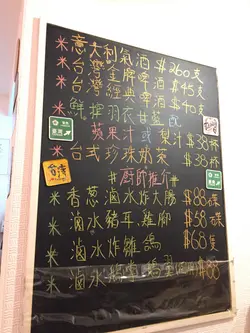 ※意大利氣酒 $260支
※台灣金牌啤酒 $45支
※台灣經典啤酒 $40支
※鮮榨羽衣甘藍或
蘋果汁或梨汁 $38杯
※台式珍珠奶茶 $38杯
#廚師推介#
※香蔥滷水炸大腸 $88碟
※滷水豬耳、雞腳 $58碟
※滷水炸雞鴿 $68隻
※滷水 $88
台灣